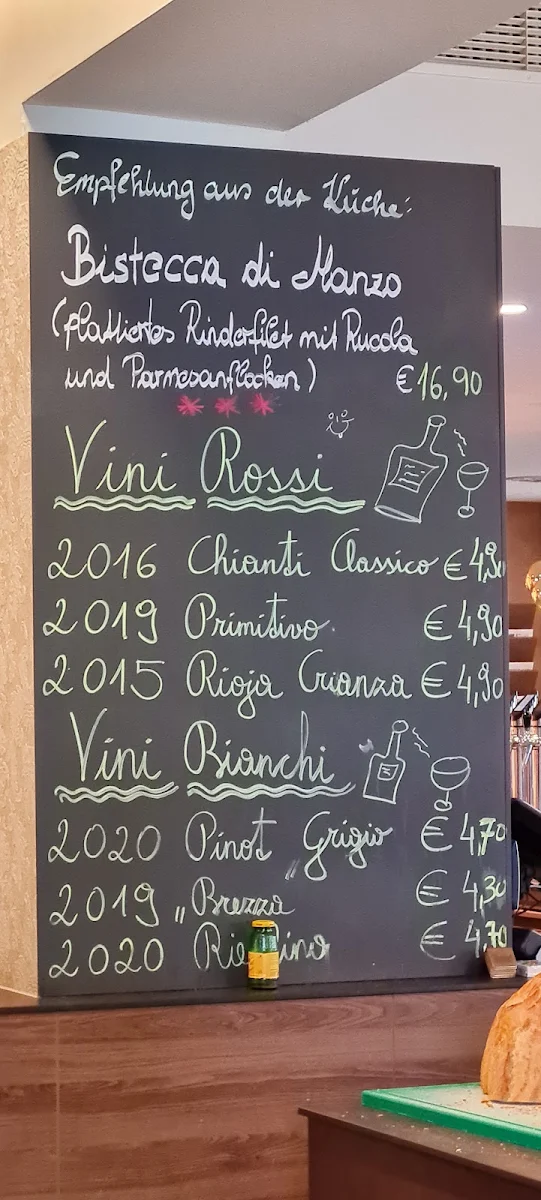 Empfehlung aus der Küche:
Bistecca di Manzo
(plattiertes Rinderfilet mit Rucola
und Parmesanflocken)
€ 16,90
Vini Rossi
2016 Chianti Classico € 4,90
2019 Primitivo. € 4,90
2015 Rioja Crianza € 4,90
Vini Bianchi
2020 Pinot Grigio € 4,70
2019 „Brezza" € 4,30
2020 € 4,70